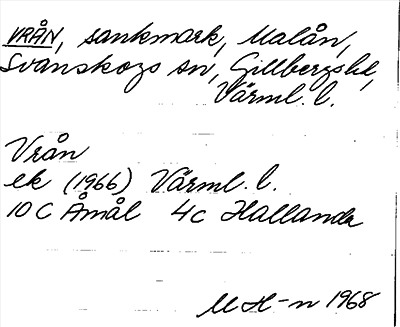 VRÅN, sankmark, Malån,
Svanskogs sn, Gillbergs hd,
Värml. l.
Vrån
ek (1966) Värml. l.
10 C Åmål 4c Hallanda
M H-n 1968